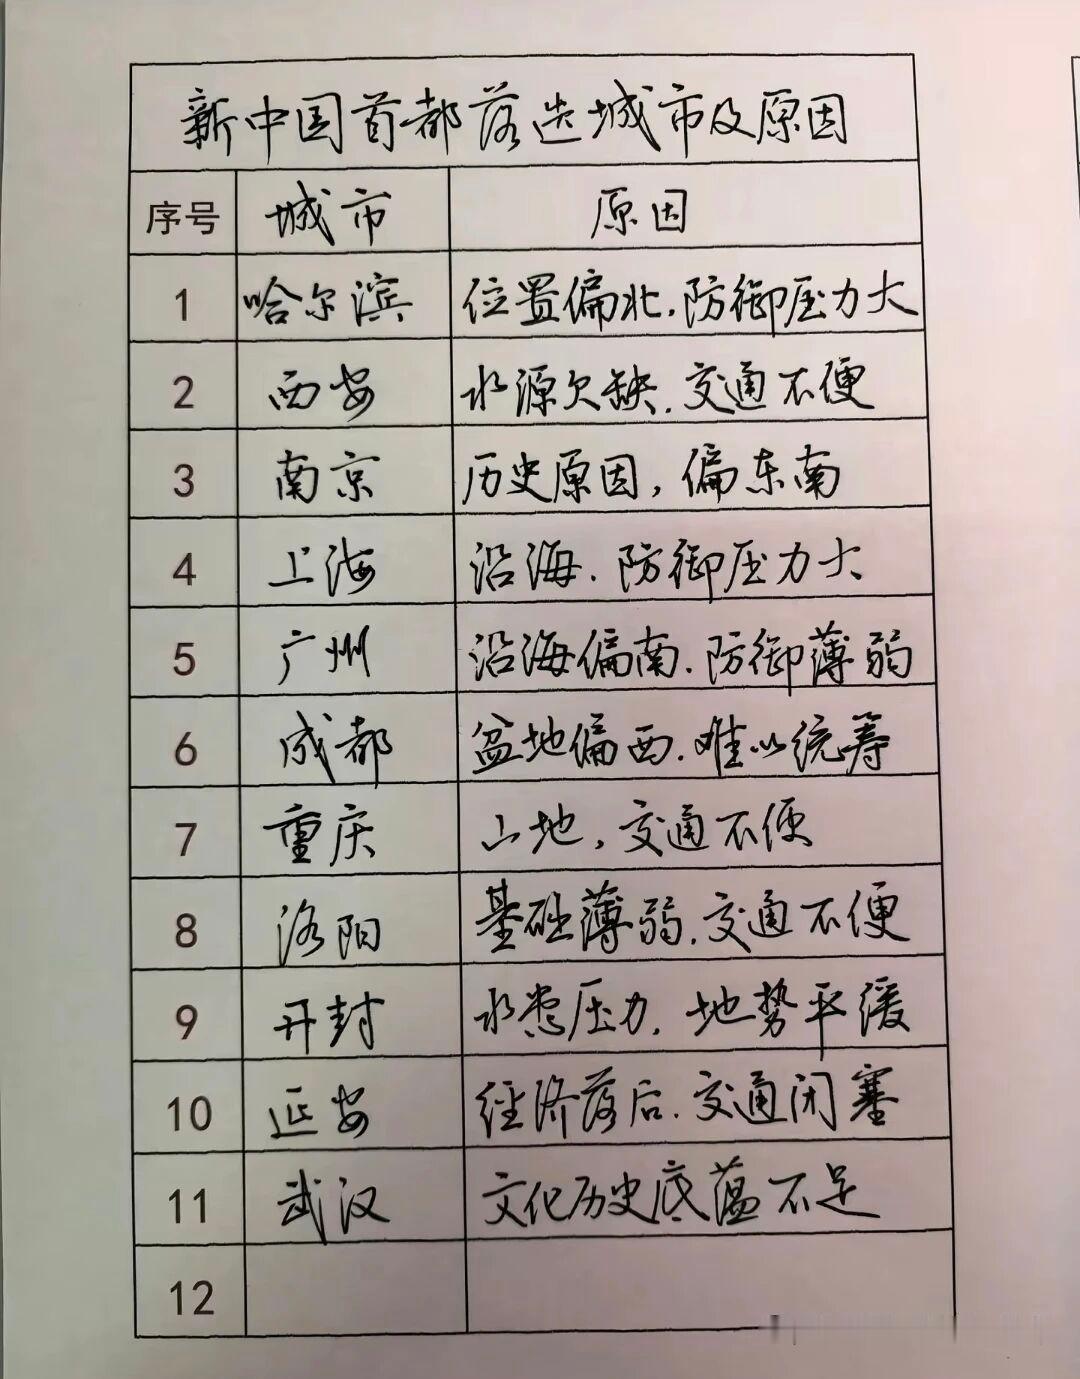 新中国首都落选城市及原因
序号 城市 原因
1 哈尔滨 位置偏北.防御压力大
2 西安 水源欠缺.交通不便
3 南京 历史原因，偏东南
4 上海 沿海.防御压力大
5 广州 沿海偏南.防御薄弱
6 成都 盆地偏西.难以统筹
7 重庆 山地，交通不便
8 洛阳 基础薄弱.交通不便
9 开封 水患压力.地势平缓
10 延安 经济落后.交通闭塞
11 武汉 文化历史底蕴不足
12